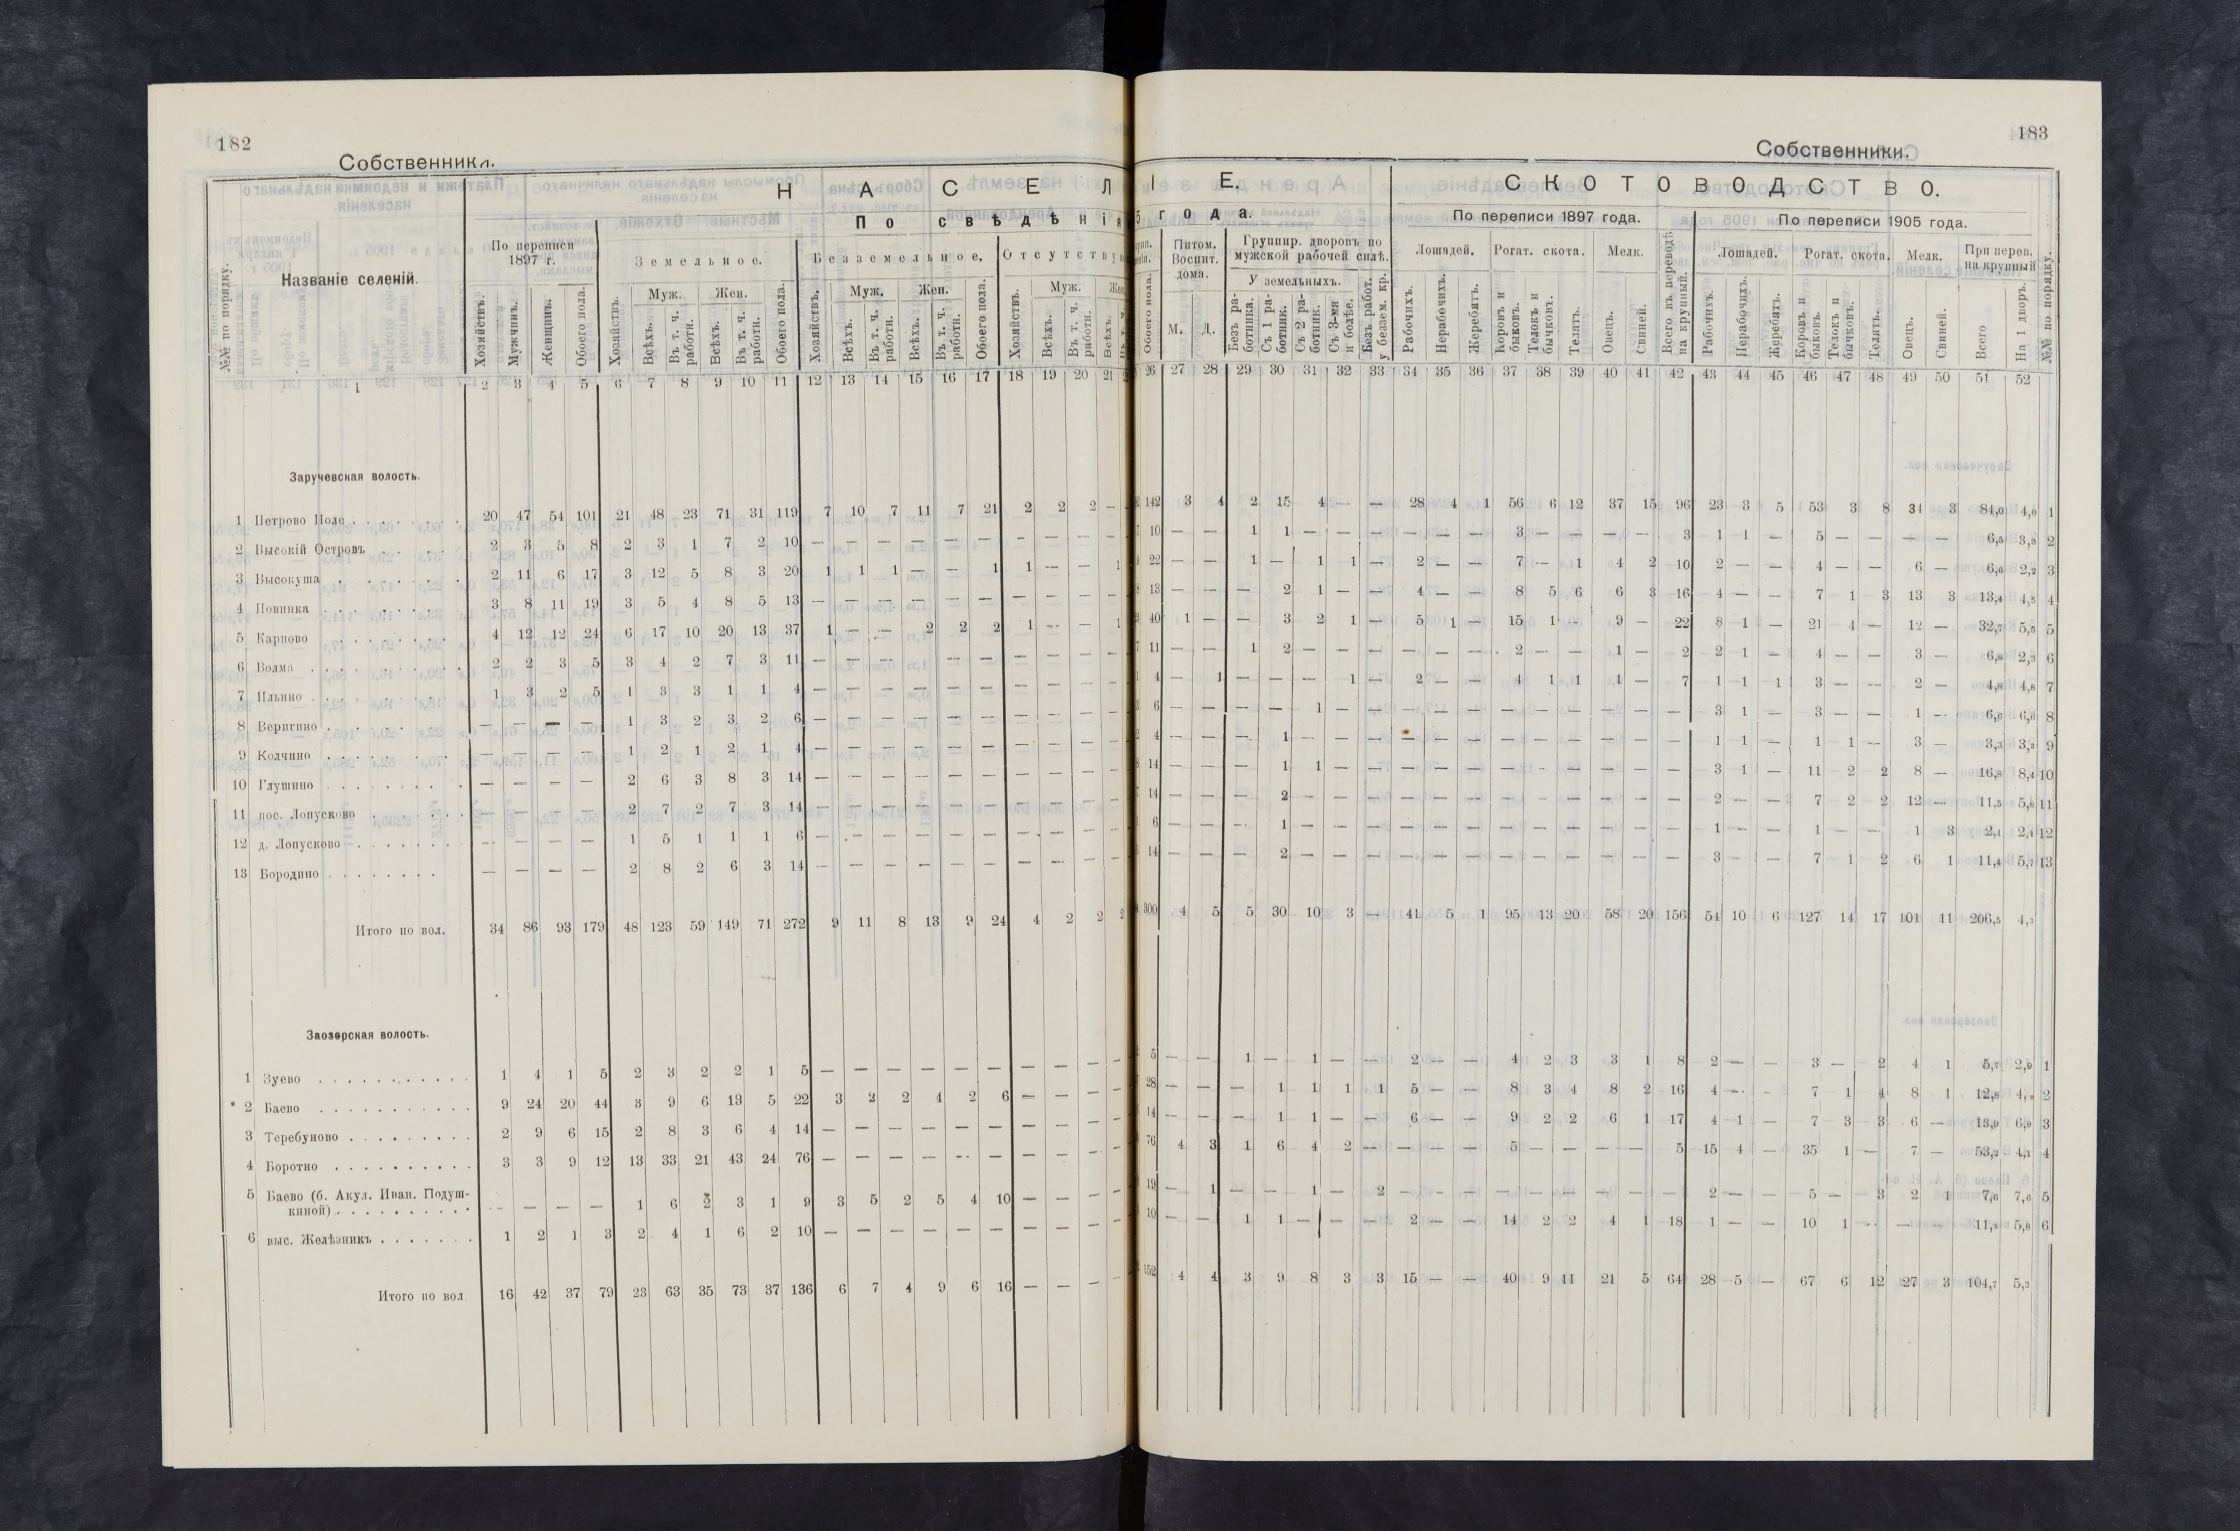 182
Собственники.
Н А С Е Л
По свѣдѣнія
№№ по порядку.
Названіе селеній.
По переписи 1897 г.
Земельное.
Безземельное.
Отсутству
Хозяйствъ.
Мужчинъ.
Женщинъ.
Обоего пола.
Хозяйствъ.
Муж.
Всѣхъ.
Въ т. ч. работн.
Жен.
Всѣхъ.
Въ т. ч. работн.
Обоего пола.
Хозяйствъ.
Муж.
Всѣхъ.
Въ т. ч. работн.
Жен.
Всѣхъ.
Въ т. ч. работн.
Обоего пола.
Хозяйствъ.
Муж.
Всѣхъ.
Въ т. ч. работн.
Всѣхъ.
1 2 3 4 5 6 7 8 9 10 11 12 13 14 15 16 17 18 19 20 21
Заручевская волость.
1 Петрово Поле . . . . . . . 20 47 54 101 21 48 23 71 31 119 7 10 7 11 7 21 2 2 2 —
2 Высокій Островъ . . . . 2 3 5 8 2 3 1 7 2 10 — — — — — — — — — —
3 Высокуша . . . . . . . 2 11 6 17 3 12 5 8 3 20 1 1 1 — — 1 1 — — 1
4 Новинка . . . . . . . 3 8 11 19 3 5 4 8 5 13 — — — — — — — — — —
5 Карпово . . . . . . . 4 12 12 24 6 17 10 20 13 37 1 — — 2 2 2 1 — — 1
6 Волма . . . . . . . . . 2 2 3 5 3 4 2 7 3 11 — — — — — — — — — —
7 Ильино . . . . . . . . 1 3 2 5 1 3 3 1 1 4 — — — — — — — — — —
8 Веригино . . . . . . . — — — — 1 3 2 3 2 6 — — — — — — — — — —
9 Колчино . . . . . . . — — — — 1 2 1 2 1 4 — — — — — — — — — —
10 Глушино . . . . . . . . — — — — 2 6 3 8 3 14 — — — — — — — — — —
11 пос. Лопусково . . . . . . — — — — 2 7 2 7 3 14 — — — — — — — — — —
12 д. Лопусково . . . . . . . — — — — 1 5 1 1 1 6 — — — — — — — — — —
13 Бородино . . . . . . . . — — — — 2 8 2 6 3 14 — — — — — — — — — —
Итого по вол. 34 86 93 179 48 123 59 149 71 272 9 11 8 13 9 24 4 2 2 2
Заозерская волость.
1 Зуево . . . . . . . . . . . 1 4 1 5 2 3 2 2 1 5 — — — — — — — — — —
2 Баево . . . . . . . . . . . 9 24 20 44 3 9 6 13 5 22 3 2 2 4 2 6 — — — —
3 Теребуново . . . . . . . . . 2 9 6 15 2 8 3 6 4 14 — — — — — — — — — —
4 Боротно . . . . . . . . . . 3 3 9 12 13 33 21 43 24 76 — — — — — — — — — —
5 Баево (б. Акул. Иван. Подуш-
киной) . . . . . . . . . . — — — — 1 6 2 3 1 9 3 5 2 5 4 10 — — — —
6 выс. Желѣзникъ . . . . . . . 1 2 1 3 2 4 1 6 2 10 — — — — — — — — — —
Итого по вол 16 42 37 79 23 63 35 73 37 136 6 7 4 9 6 16 — — — —
183
Собственники.
І Е.
С К О Т О В О Д С Т В О.
5 года.
По переписи 1897 года.
По переписи 1905 года.
Обоего пола.
Питом. Воспит. дома.
М.
Д.
Группир. дворовъ по мужской рабочей силѣ.
У земельныхъ.
Безъ ра-ботника.
Съ 1 ра-ботник.
Съ 2 ра-ботник.
Съ 3-мя и болѣе.
Безъ работ. у беззем. кр.
Лошадей.
Рабочихъ.
Нерабочихъ.
Жеребятъ.
Рогат. скота.
Коровъ и быковъ.
Телокъ и бычковъ.
Телятъ.
Мелк.
Овецъ.
Свиней.
Всего въ переводѣ на крупный.
Лошадей.
Рабочихъ.
Нерабочихъ.
Жеребятъ.
Рогат. скота.
Коровъ и быковъ.
Телокъ и бычковъ.
Телятъ.
Мелк.
Овецъ.
Свиней.
При переп. на крупный
Всего
На 1 дворъ.
№№ по порядку.
26 27 28 29 30 31 32 33 34 35 36 37 38 39 40 41 42 43 44 45 46 47 48 49 50 51 52
142 3 4 2 15 4 — — 28 4 1 56 6 12 37 15 96 23 3 5 53 3 8 34 3 84,0 4,0 1
10 — — 1 1 — — — — — — 3 — — — — 3 1 1 — 5 — — — — 6,5 3,3 2
22 — — 1 — 1 1 — 2 — — 7 — 1 4 2 10 2 — — 4 — — 6 — 6,6 2,2 3
13 — — — 2 1 — — 4 — — 8 5 6 6 3 16 4 — — 7 1 3 13 3 13,4 4,5 4
40 1 — — 3 2 1 — 5 1 — 15 1 — 9 — 22 8 1 — 21 4 — 12 — 32,7 5,5 5
11 — — 1 2 — — — — — — 2 — — 1 — 2 2 1 — 4 — — 3 — 6,8 2,3 6
4 — 1 — — — 1 — 2 — — 4 1 1 1 — 7 1 1 1 3 — — 2 — 4,8 4,8 7
6 — — — — 1 — — — — — — — — — — — 3 1 — 3 — — 1 — 6,6 6,6 8
4 — — — 1 — — — — — — — — — — — — 1 1 — 1 1 — 3 — 3,3 3,3 9
14 — — — 1 1 — — — — — — — — — — — 3 1 — 11 2 2 8 — 16,8 8,4 10
14 — — — 2 — — — — — — — — — — — — 2 — — 7 2 2 12 — 11,5 5,8 11
6 — — — 1 — — — — — — — — — — — — 1 — — 1 — — 1 3 2,4 2,4 12
14 — — — 2 — — — — — — — — — — — — 3 — — 7 1 2 6 1 11,4 5,7 13
300 4 5 5 30 10 3 — 41 5 1 95 13 20 58 20 156 54 10 6 127 14 17 101 11 206,5 4,3
5 — — 1 — 1 — — 2 — — 4 2 3 3 1 8 2 — — 3 — 2 4 1 5,7 2,9 1
28 — — — 1 1 1 1 5 — — 8 3 4 8 2 16 4 — — 7 1 4 8 1 12,8 2
14 — — — 1 1 — — 6 — — 9 2 2 6 1 17 4 1 — 7 3 3 6 — 13,9 6,9 3
76 4 3 1 6 4 2 — — — — 5 — — — — 5 15 4 — 35 1 — 7 — 53,2 4,1 4
19 — 1 — — 1 — 2 — — — — — — — — — 2 — — 5 — 3 2 1 7,6 7,6 5
10 — — 1 1 — — — 2 — — 14 2 2 4 1 18 1 — — 10 1 — — — 11,5 5,8 6
152 4 4 3 9 8 3 3 15 — — 40 9 11 21 5 64 28 5 — 67 6 12 27 3 104,7 5,3